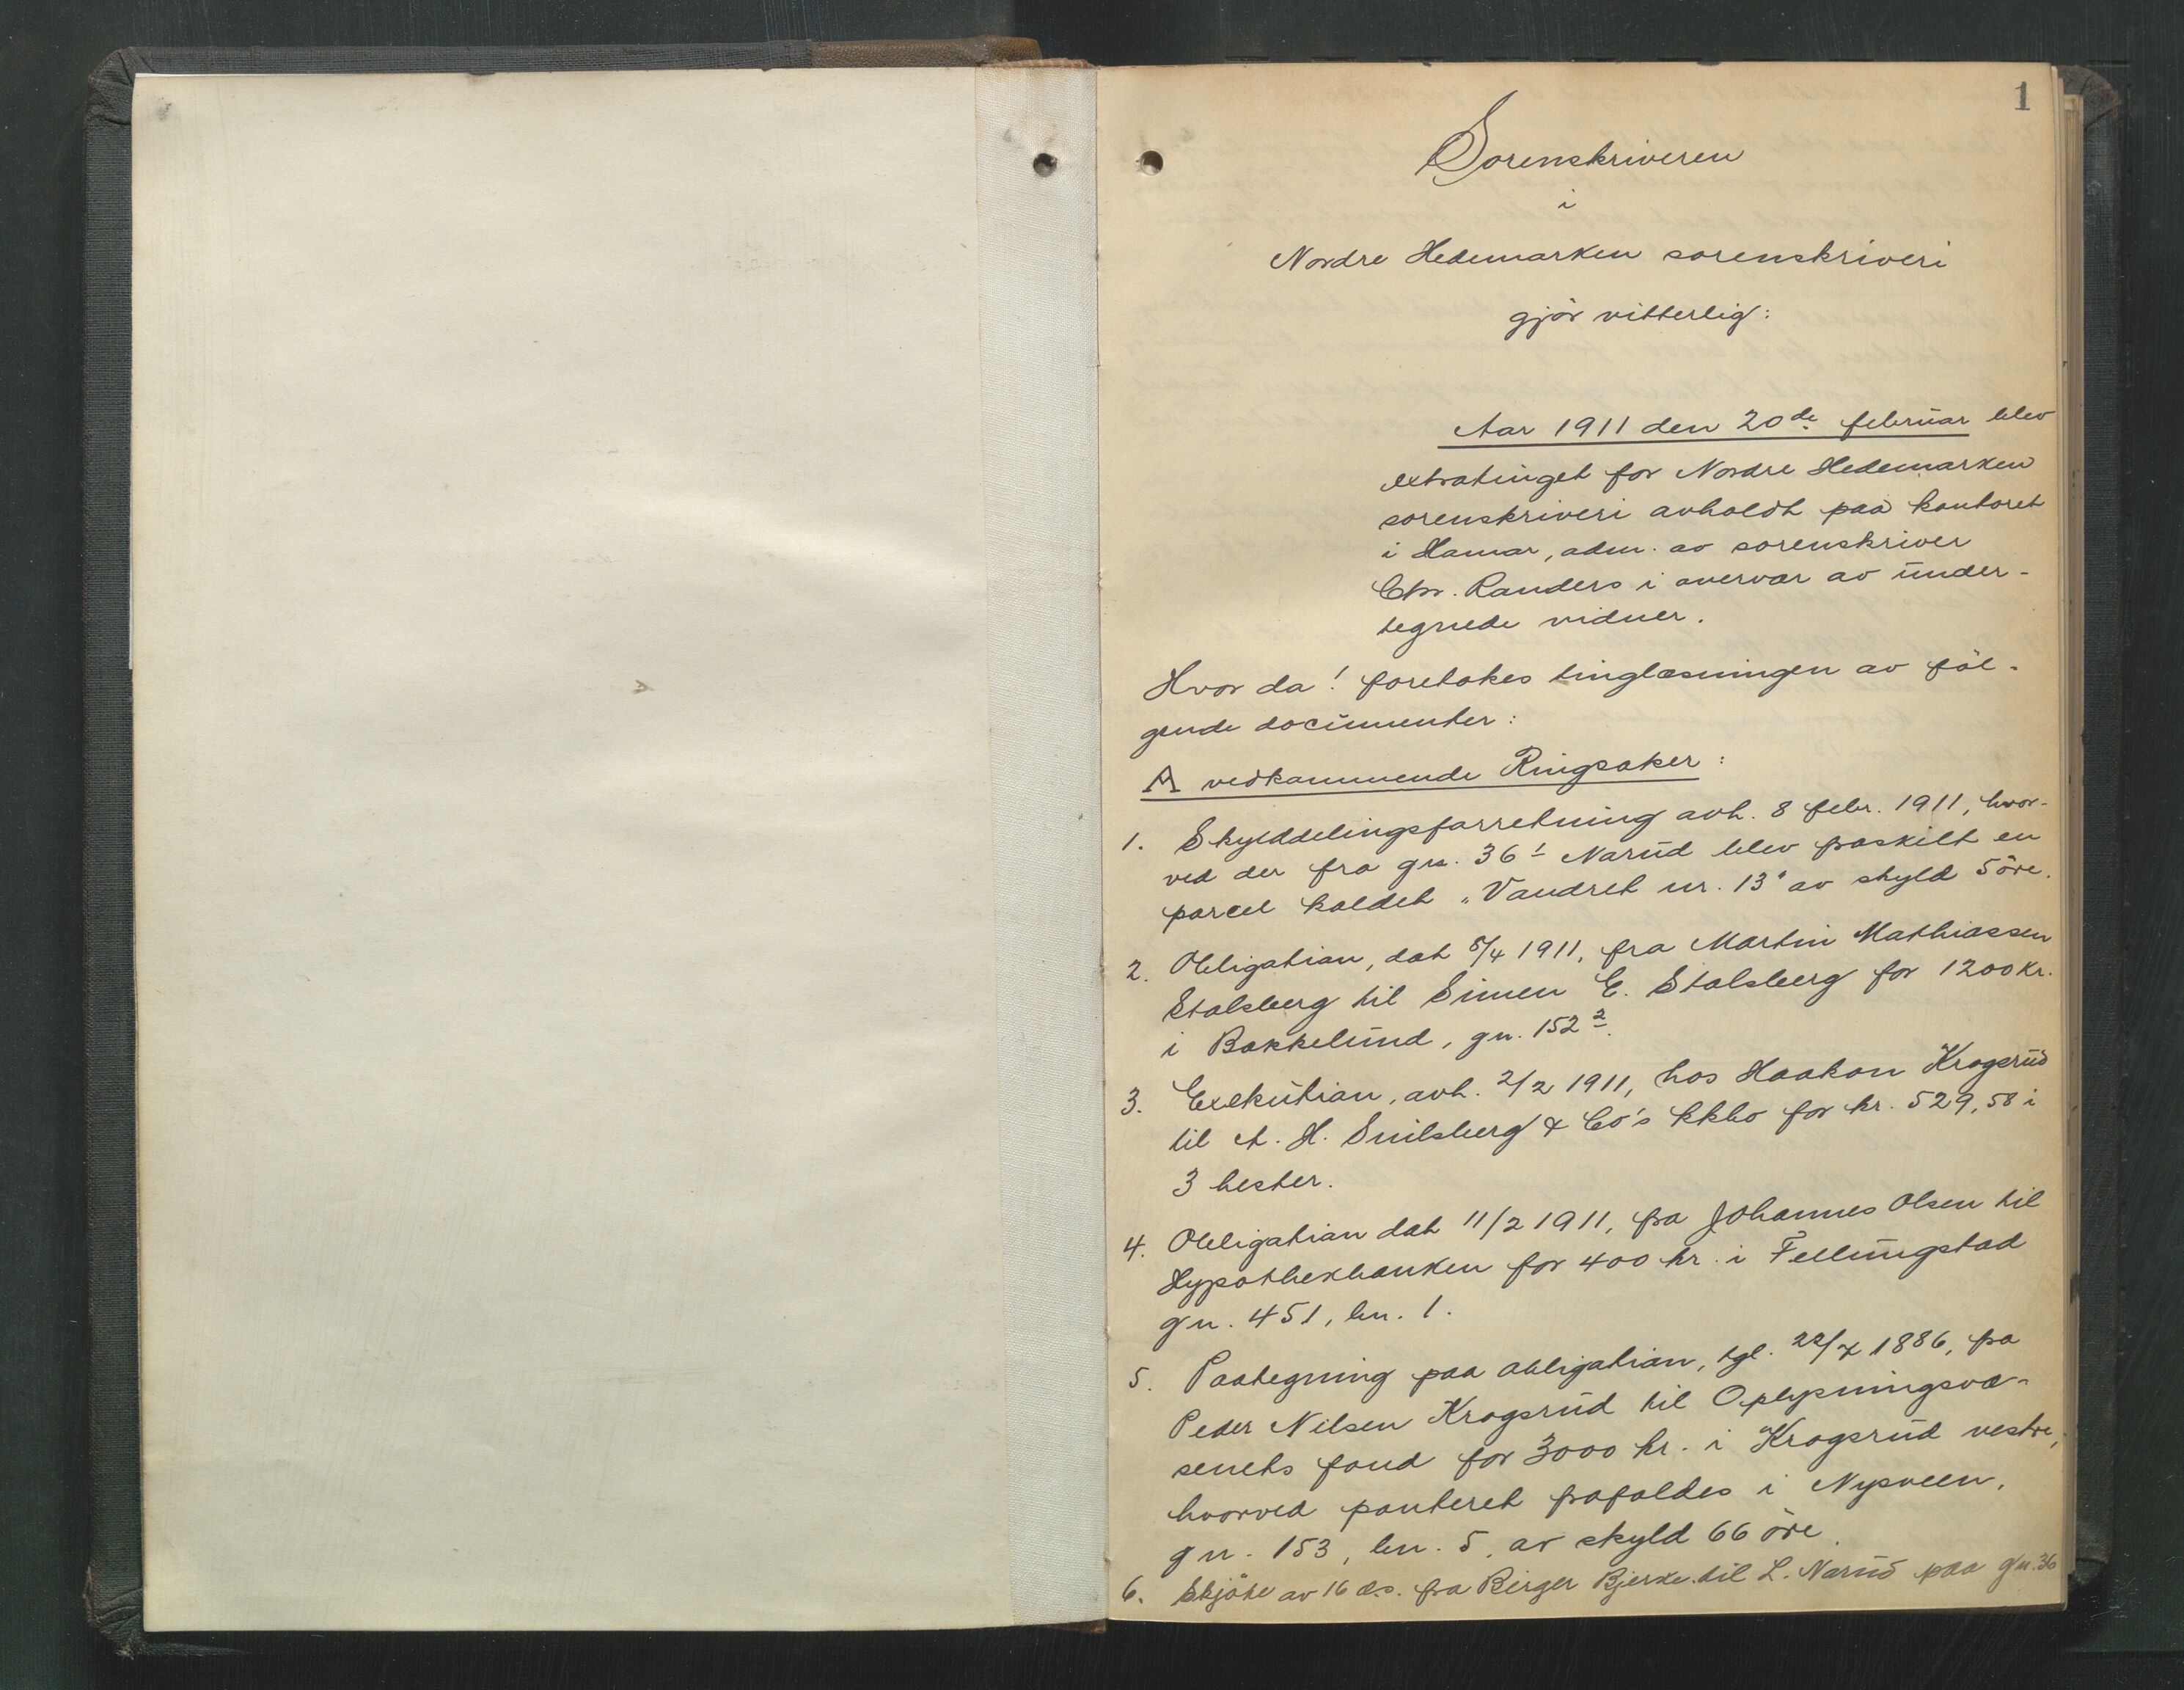 1
Sorenskriveren
i
Nordre Hedemarken sorenskriveri
gjör vitterlig:
Aar 1911 den 20de februar blev
extratinget for Nordre Hedemarken
sorenskriveri avholdt paa kontoret
i Hamar, adm. av sorenskriver
Chr. Randers i overvær av under-
tegnede vidner.
Hvor da! foretokes tinglæsningen av föl-
gende documenter:
A vedkommende Ringsaker:
1. Skylddelingsforretning avh. 8 febr. 1911, hvor-
ved der fra gn. 36¹ Narud blev fraskilt en
parcel kaldet "Vandret nr. 13" av skyld 5 öre.
2. Obligation, dat 5/4 1911, fra Martin Mathiassen
Stalsberg til Simen E. Stalsberg for 1200 kr.
i Bakkelund, gn. 152².
3. Exekution, avh. 2/2 1911, hos Haakon Krogsrud
til A. H. Smilsberg & Co's kkbo for kr. 529,58 i
3 hester.
4. Obligation dat 11/2 1911, fra Johannes Olsen til
Hypothekbanken for 400 kr. i Fellungstad
gn. 451, bn. 1.
5. Paategning paa obligation, tgl. 22/7 1886, fra
Peder Nilsen Krogsrud til Oplysningsvæ-
senets fond for 3000 kr. i Krogsrud vestre,
hvorved panteret frafaldes i Nysveen,
gn. 153, bn. 5, av skyld 66 öre.
6. Skjöte av 16 ds. fra Birger Bjerke til L. Narud paa gn. 36